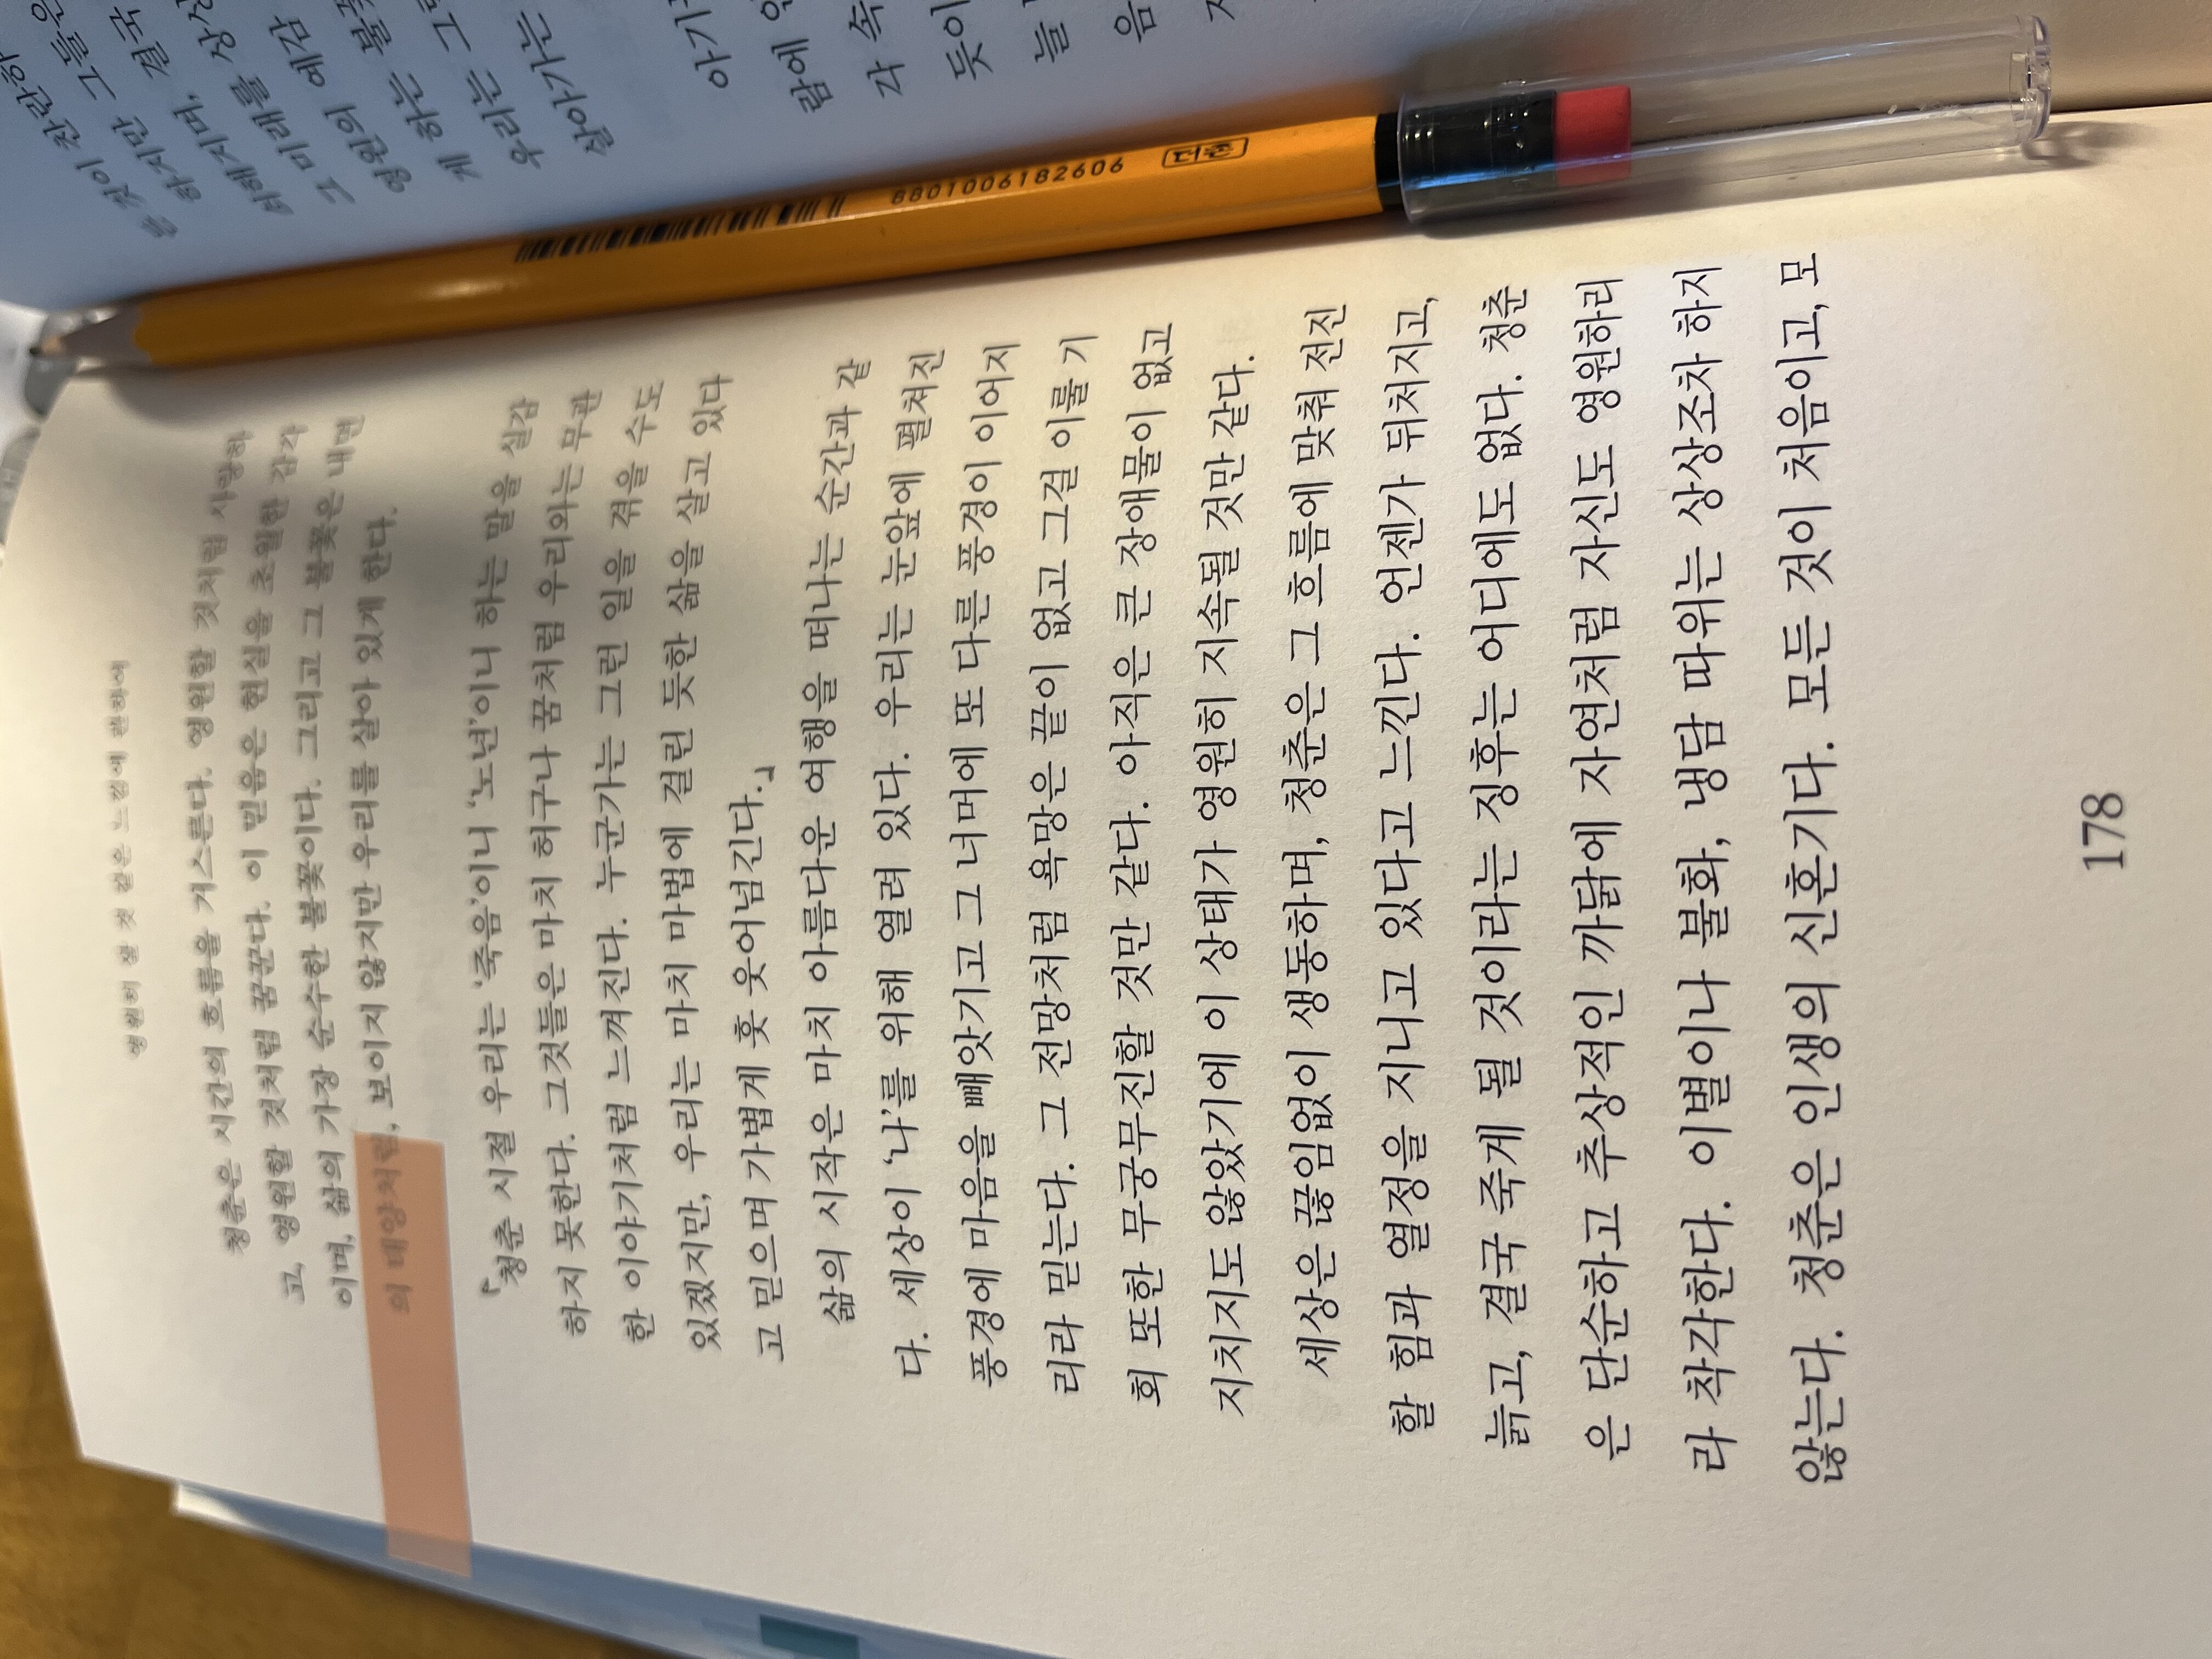 영원히 살 것 같은 느낌에 관하여
청춘은 시간의 흐름을 거스른다. 영원할 것처럼 사랑하
고, 영원할 것처럼 꿈꾼다. 이 믿음은 현실을 초월한 감각
이며, 삶의 가장 순수한 불꽃이다. 그리고 그 불꽃은 내면
의 태양처럼, 보이지 않지만 우리를 살아 있게 한다.
『청춘 시절 우리는 ‘죽음’이니 ‘노년’이니 하는 말을 실감
하지 못한다. 그것들은 마치 허구나 꿈처럼 우리와는 무관
한 이야기처럼 느껴진다. 누군가는 그런 일을 겪을 수도
있겠지만, 우리는 마치 마법에 걸린 듯한 삶을 살고 있다
고 믿으며 가볍게 훗 웃어넘긴다.』
삶의 시작은 마치 아름다운 여행을 떠나는 순간과 같
다. 세상이 ‘나’를 위해 열려 있다. 우리는 눈앞에 펼쳐진
풍경에 마음을 빼앗기고 그 너머에 또 다른 풍경이 이어지
리라 믿는다. 그 전망처럼 욕망은 끝이 없고 그걸 이룰 기
회 또한 무궁무진할 것만 같다. 아직은 큰 장애물이 없고
지치지도 않았기에 이 상태가 영원히 지속될 것만 같다.
세상은 끊임없이 생동하며, 청춘은 그 흐름에 맞춰 전진
할 힘과 열정을 지니고 있다고 느낀다. 언젠가 뒤처지고,
늙고, 결국 죽게 될 것이라는 징후는 어디에도 없다. 청춘
은 단순하고 추상적인 까닭에 자연처럼 자신도 영원하리
라 착각한다. 이별이나 불화, 냉담 따위는 상상조차 하지
않는다. 청춘은 인생의 신혼기다. 모든 것이 처음이고, 모
178
8801006182606
더존
것이 찬란하
하지만 그들은
하지며, 결국
미래를 상상
그
영원의 예감
게 하는 불꽃
우리는 그
살아가는
아가
람에
각 속
듯이
늘
음